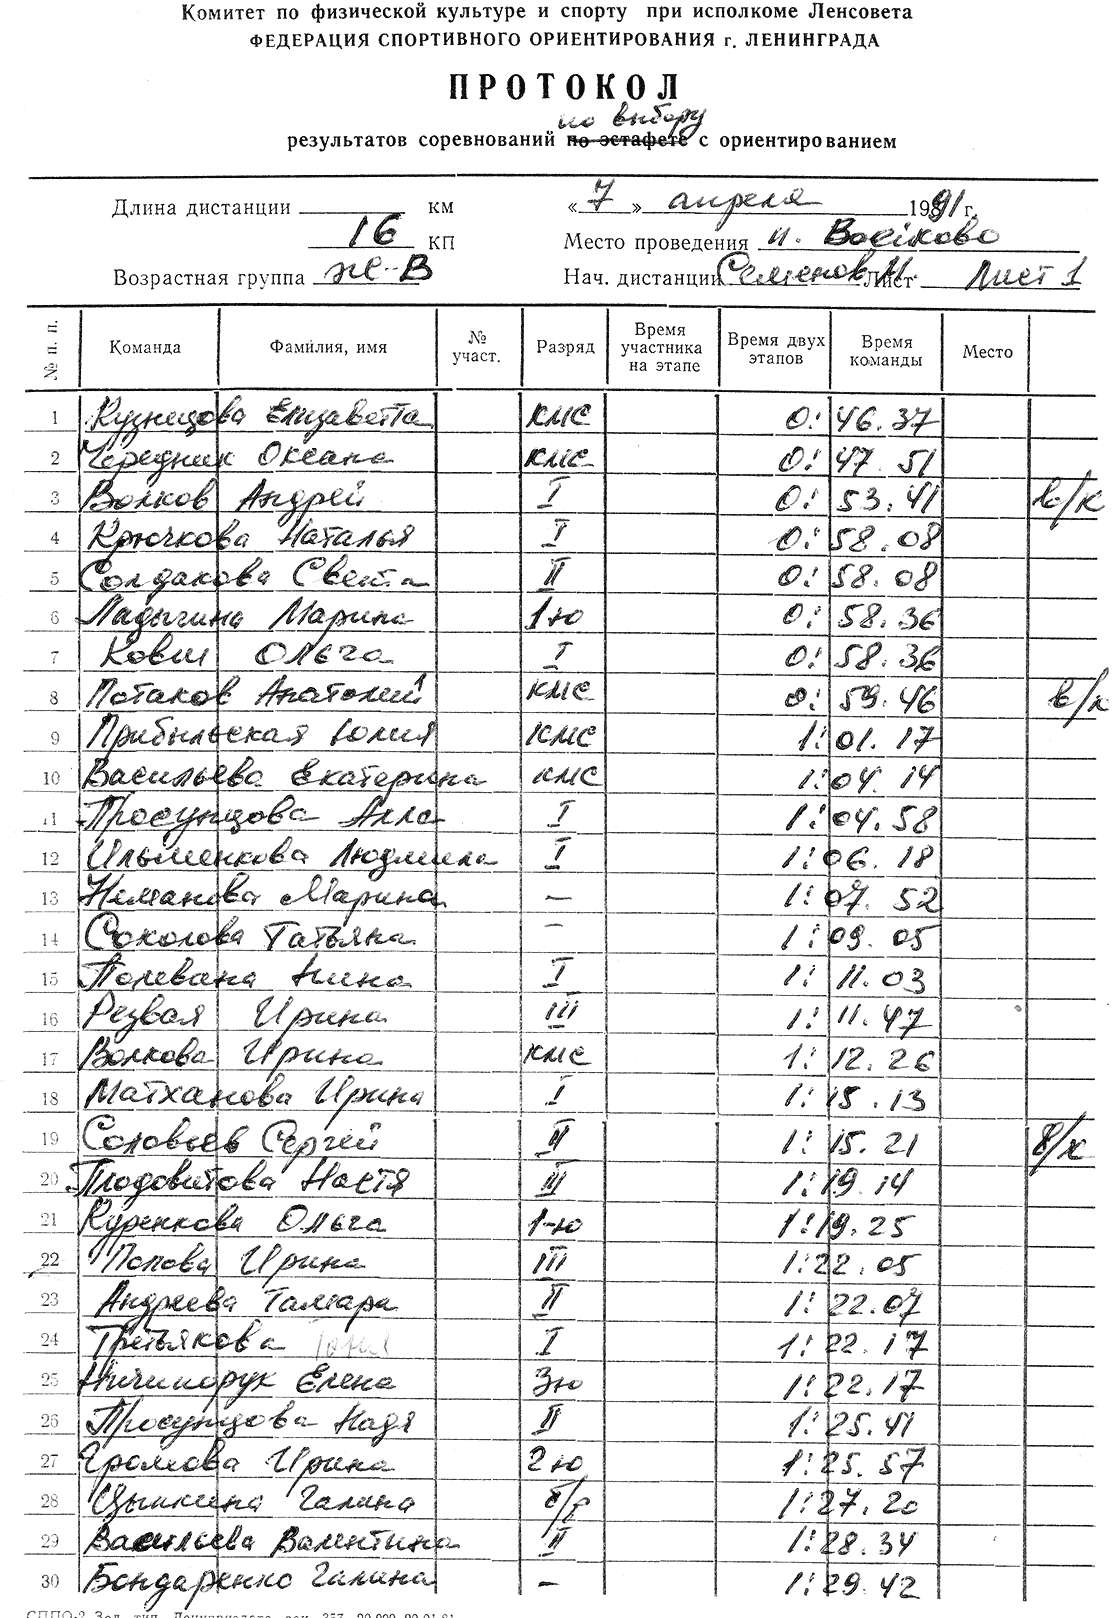 Комитет по физической культуре и спорту при исполкоме Ленсовета
ФЕДЕРАЦИЯ СПОРТИВНОГО ОРИЕНТИРОВАНИЯ г. ЛЕНИНГРАДА
ПРОТОКОЛ
по выбору
результатов соревнований по эстафете с ориентированием
Длина дистанции км «7» апреля 1991 г.
16 КП Место проведения п. Воейково
Возрастная группа Ж-В Нач. дистанции Семенов М. Лист Лист 1
№ п. п. Команда Фамилия, имя № участ. Разряд Время участника на этапе Время двух этапов Время команды Место
1 Кузнецова Елизавета КМС 0: 46.37
2 Чередник Оксана КМС 0: 47.51
3 Волков Андрей I 0: 53.41 в/к
4 Крючкова Наталья I 0: 58.08
5 Солдакова Света II 0: 58.08
6 Ладыгина Марина 1ю 0: 58.36
7 Ковш Ольга I 0: 58.36
8 Потаков Анатолий КМС 0: 59.46 в/к
9 Прибыльская Юлия КМС 1: 01.17
10 Васильева Екатерина КМС 1: 04.14
11 Просунцова Алла I 1: 04.58
12 Ильменкова Людмила I 1: 06.18
13 Неманова Марина — 1: 07.52
14 Соколова Татьяна — 1: 09.05
15 Полевана Нина I 1: 11.03
16 Резвая Ирина III 1: 11.47
17 Волкова Ирина КМС 1: 12.26
18 Матханова Ирина I 1: 15.13
19 Соловьев Сергей II 1: 15.21 в/к
20 Плодовитова Настя III 1: 19.14
21 Куренкова Ольга 1-ю 1: 19.25
22 Попова Ирина III 1: 22.05
23 Андреева Тамара II 1: 22.07
24 Третьякова I 1: 22.17
25 Ничипорук Елена 3ю 1: 22.17
26 Просунцова Надя II 1: 25.41
27 Громова Ирина 2ю 1: 25.57
28 Цыпкина Галина б/р 1: 27.20
29 Васильева Валентина II 1: 28.34
30 Бондаренко Галина — 1: 29.42